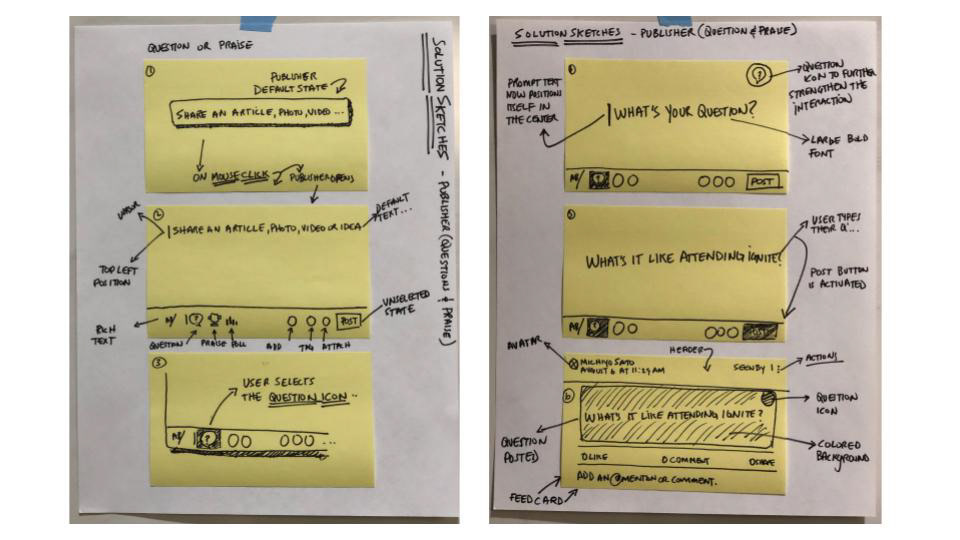 QUESTION OR PRAISE
SOLUTION SKETCHES - PUBLISHER (QUESTIONS & PRAISE)
1
PUBLISHER
DEFAULT STATE
SHARE AN ARTICLE, PHOTO, VIDEO ...
ON MOUSE CLICK
PUBLISHER OPENS
2
SHARE AN ARTICLE, PHOTO, VIDEO OR IDEA
DEFAULT
TEXT...
TOP LEFT
POSITION
UNSELECTED
STATE
RICH
TEXT
?
POST
QUESTION
PRAISE
POLL
ADD
TAG
ATTACH
3
USER SELECTS
THE QUESTION ICON ..
?
...
SOLUTION SKETCHES - PUBLISHER (QUESTION & PRAISE)
PROMPT TEXT
NOW POSITIONS
ITSELF IN
THE CENTER
?
QUESTION
ICON TO FURTHER
STRENGTHEN THE
INTERACTION
WHAT'S YOUR QUESTION?
LARGE BOLD
FONT
?
POST
WHAT'S IT LIKE ATTENDING IGNITE?
USER TYPES
THEIR Q'...
POST BUTTON
IS ACTIVATED
?
POST
AVATAR
HEADER
MICHIYO SATO
AUGUST 6 AT 11:29 AM
SEEN BY 1
ACTIONS
6
WHAT'S IT LIKE ATTENDING IGNITE?
QUESTION
ICON
QUESTION
POSTED
COLORED
BACKGROUND
LIKE
COMMENT
SHARE
ADD AN @MENTION OR COMMENT.
FEED CARD